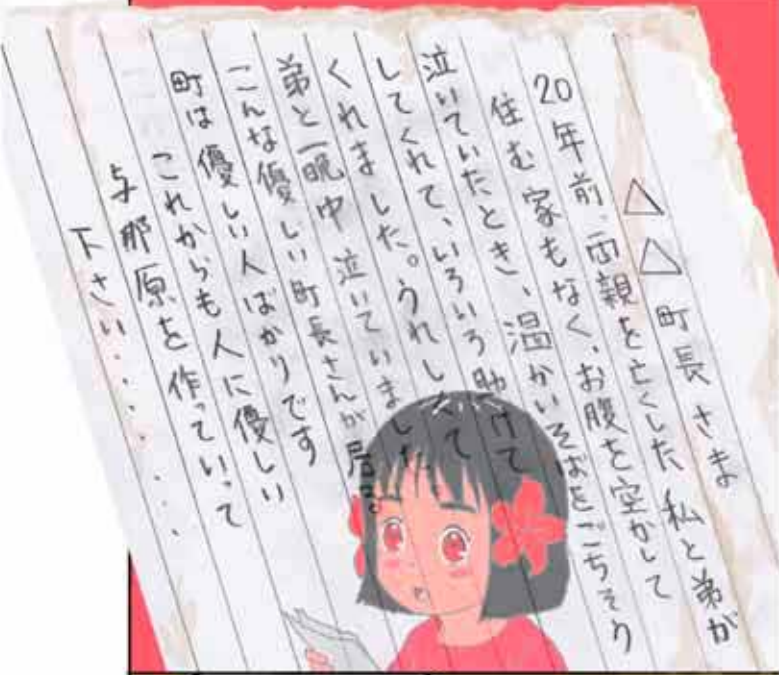 △△町長さま
20年前、両親を亡くした私と弟が
住む家もなく、お腹を空かして
泣いていたとき、温かいそばをごちそう
してくれて、いろいろ助けて
くれました。うれしくて
弟と一晩中 泣いていました。
こんな優しい町長さんが居る。
町は優しい人ばかりです
これからも人に優しい
与那原を作っていって
下さい・・・・・・・